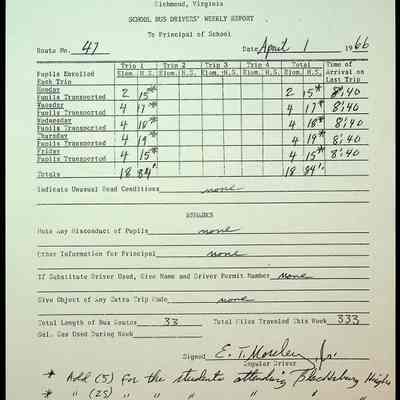 Richmond, Virginia
SCHOOL BUS DRIVERS' WEEKLY REPORT
To Principal of School
Route No. 47 Date April 1 1966
Trip 1 Trip 2 Trip 3 Trip 4 Total Time of
Pupils Enrolled Elem. H.S. Elem. H.S. Elem. H.S. Elem. H.S. Elem. H.S. Arrival on
Each Trip Last Trip
Monday
Pupils Transported 2 15* 2 15* 8:40
Tuesday
Pupils Transported 4 17* 4 17* 8:40
Wednesday
Pupils Transported 4 18* 4 18* 8:40
Thursday
Pupils Transported 4 19* 4 19* 8:40
Friday
Pupils Transported 4 15* 4 15* 8:40
Totals 18 84 18 84
Indicate Unusual Road Conditions none
REMARKS
Note Any Misconduct of Pupils none
Other Information for Principal none
If Substitute Driver Used, Give Name and Driver Permit Number none
Give Object of Any Extra Trip Made none
Total Length of Bus Routes 33 Total Miles Traveled This Week 333
Gal. Gas Used During Week
Signed E. T. Jr.
Regular Driver
* Add (5) for the students attending Blacksburg Highs
* " (25) " " " "